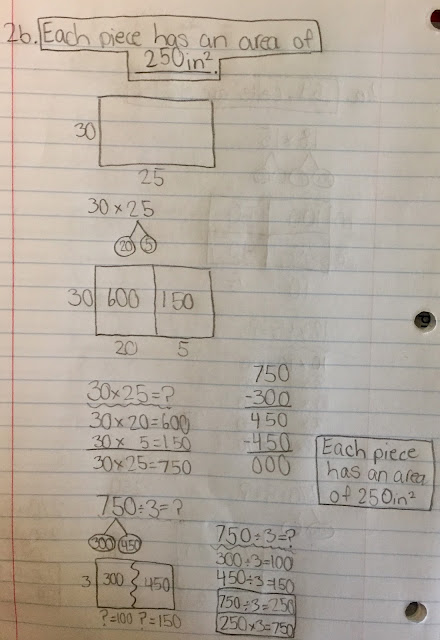 2b. Each piece has an area of
250in².
30
25
30×25
20 5
30 600 150
20 5
30×25=?
30×20=600
30× 5=150
30×25=750
750
-300
450
-450
000
Each piece
has an area
of 250in²
750÷3=?
300 450
3 300 450
?=100 ?=150
750÷3=?
300÷3=100
450÷3=150
750÷3=250
250×3=750